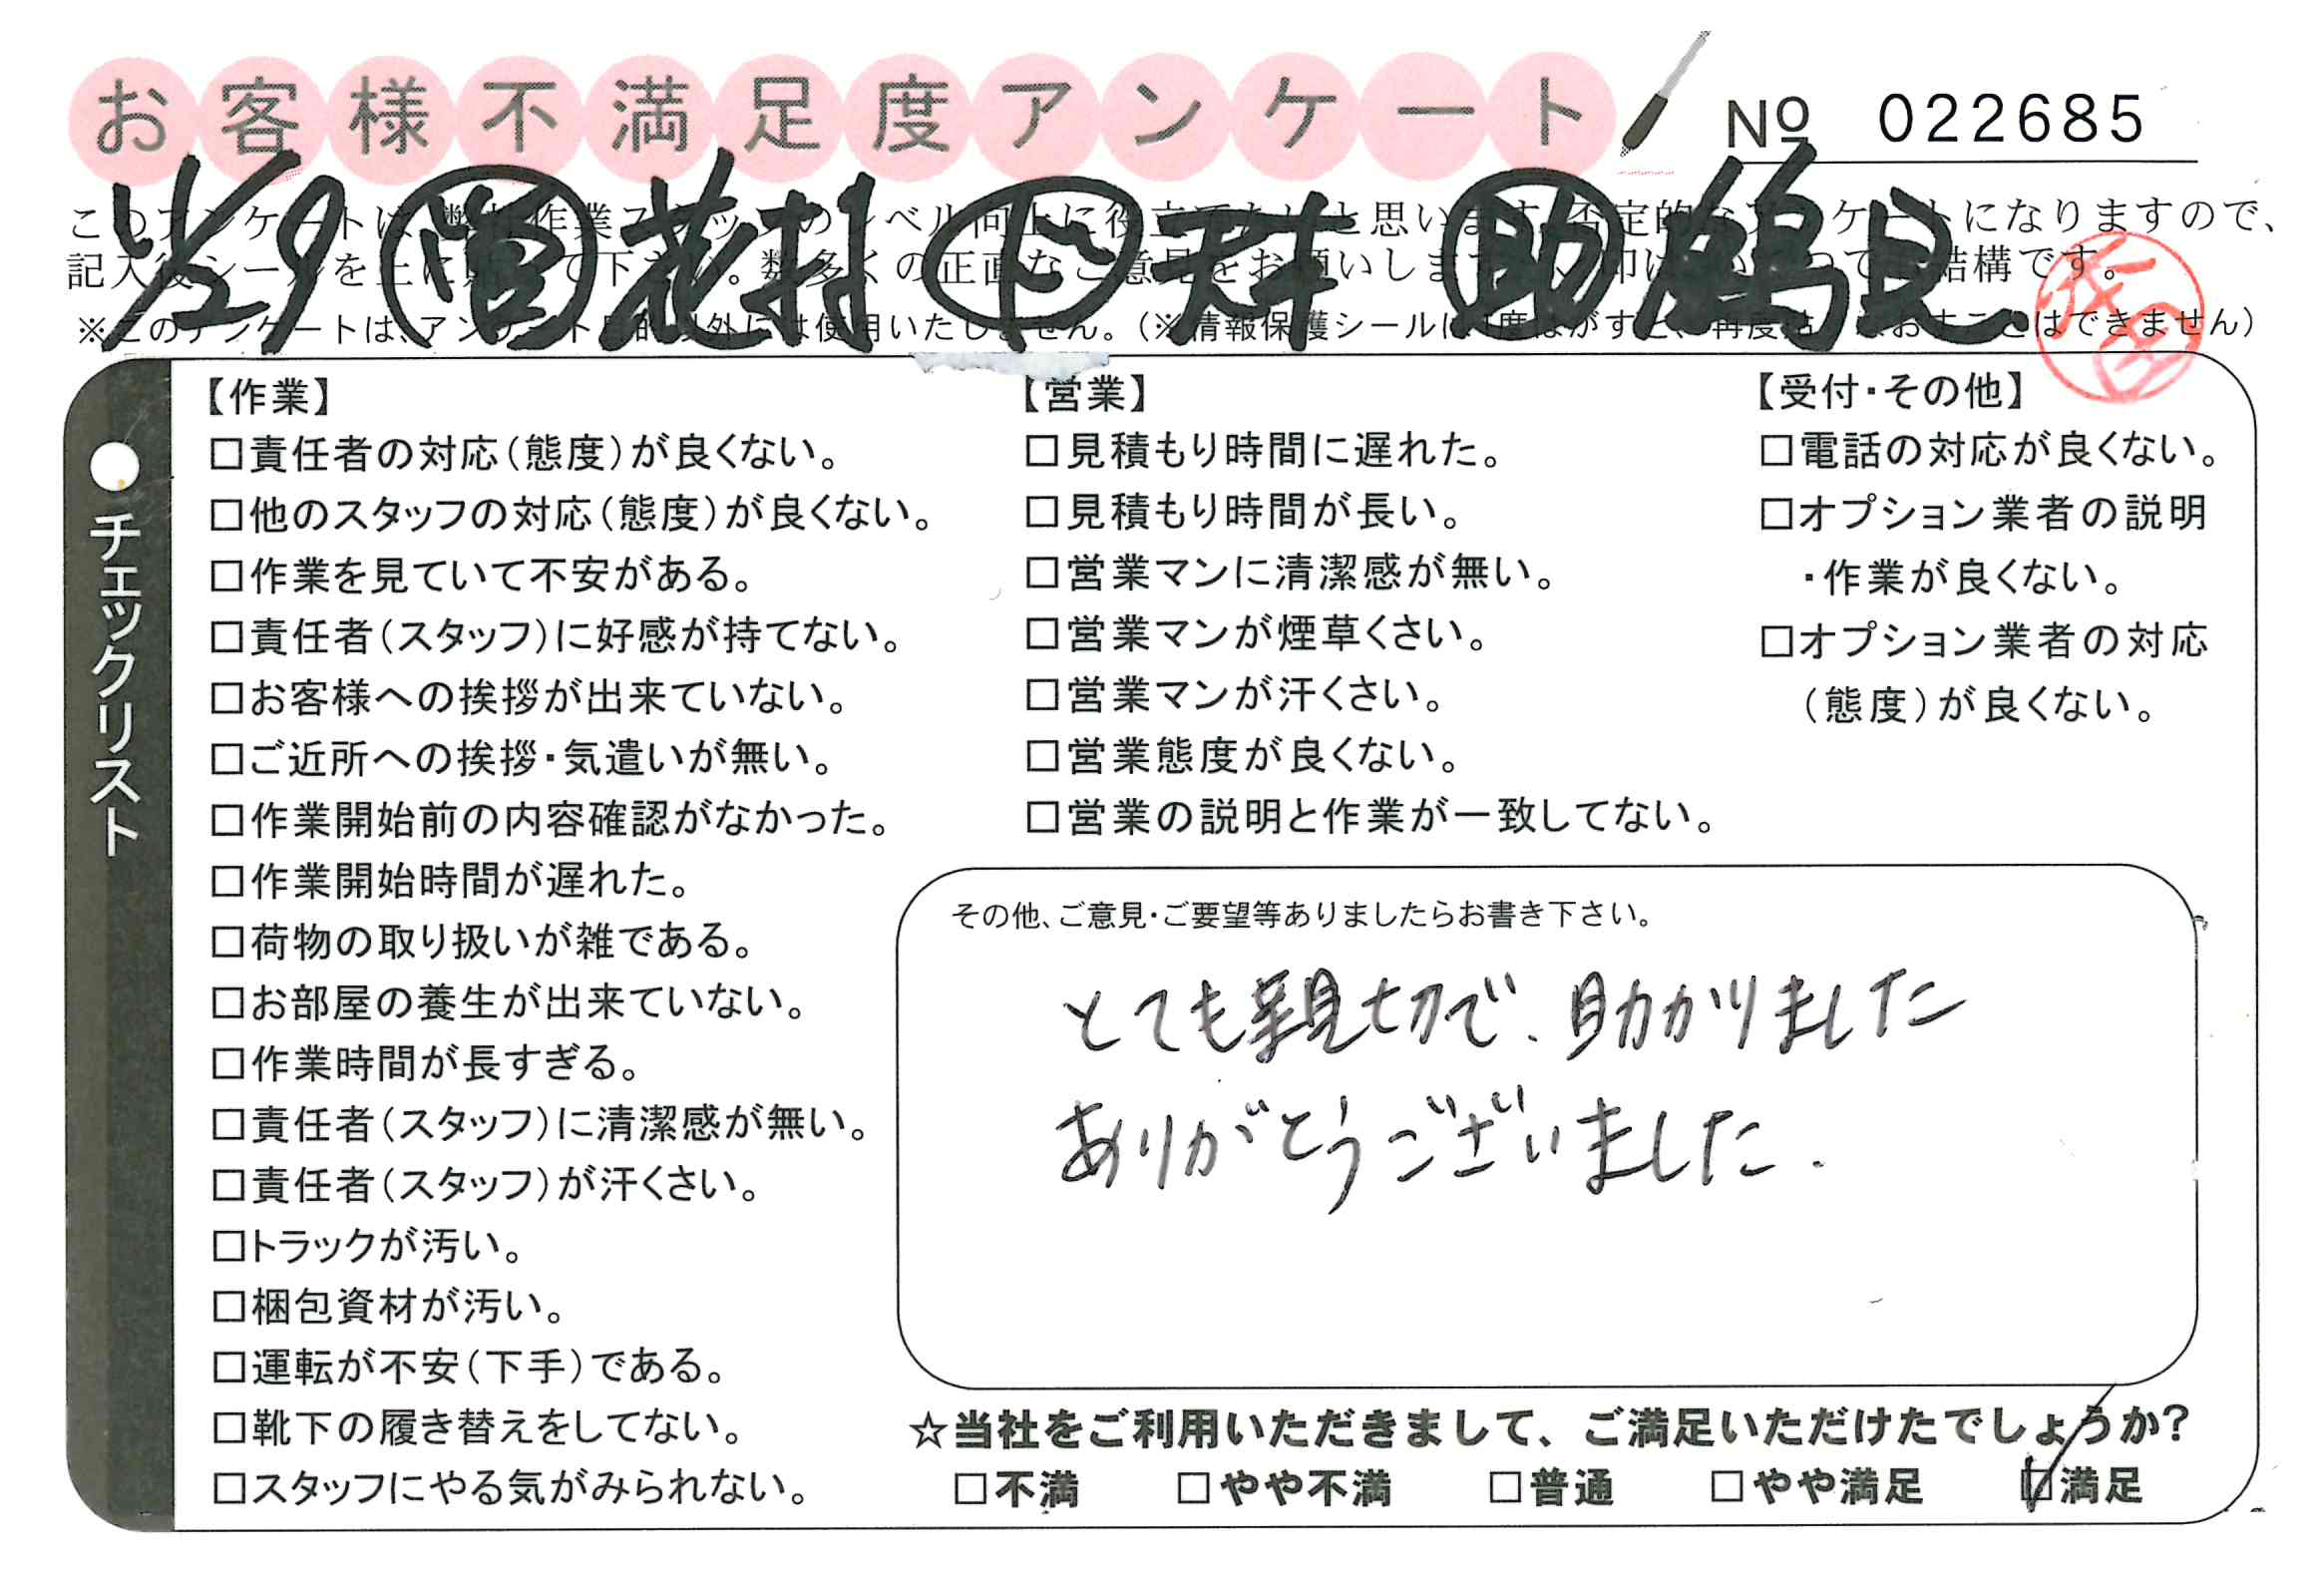 お客様不満足度アンケート
№ 022685
11/29 営 花村 ド 天本 助 鶴見
記入後シールを上に
※このアンケートは、アンケート目的以外には使用いたしません。(※情報保護シールは1度はがすと、再度貼りなおすことはできません)
●チェックリスト
【作業】
□責任者の対応(態度)が良くない。
□他のスタッフの対応(態度)が良くない。
□作業を見ていて不安がある。
□責任者(スタッフ)に好感が持てない。
□お客様への挨拶が出来ていない。
□ご近所への挨拶・気遣いが無い。
□作業開始前の内容確認がなかった。
□作業開始時間が遅れた。
□荷物の取り扱いが雑である。
□お部屋の養生が出来ていない。
□作業時間が長すぎる。
□責任者(スタッフ)に清潔感が無い。
□責任者(スタッフ)が汗くさい。
□トラックが汚い。
□梱包資材が汚い。
□運転が不安(下手)である。
□靴下の履き替えをしてない。
□スタッフにやる気がみられない。
【営業】
□見積もり時間に遅れた。
□見積もり時間が長い。
□営業マンに清潔感が無い。
□営業マンが煙草くさい。
□営業マンが汗くさい。
□営業態度が良くない。
□営業の説明と作業が一致してない。
【受付・その他】
□電話の対応が良くない。
□オプション業者の説明
・作業が良くない。
□オプション業者の対応
(態度)が良くない。
その他、ご意見・ご要望等ありましたらお書き下さい。
とても親切で、助かりました
ありがとうございました.
☆当社をご利用いただきまして、ご満足いただけたでしょうか?
□不満 □やや不満 □普通 □やや満足 ☑満足